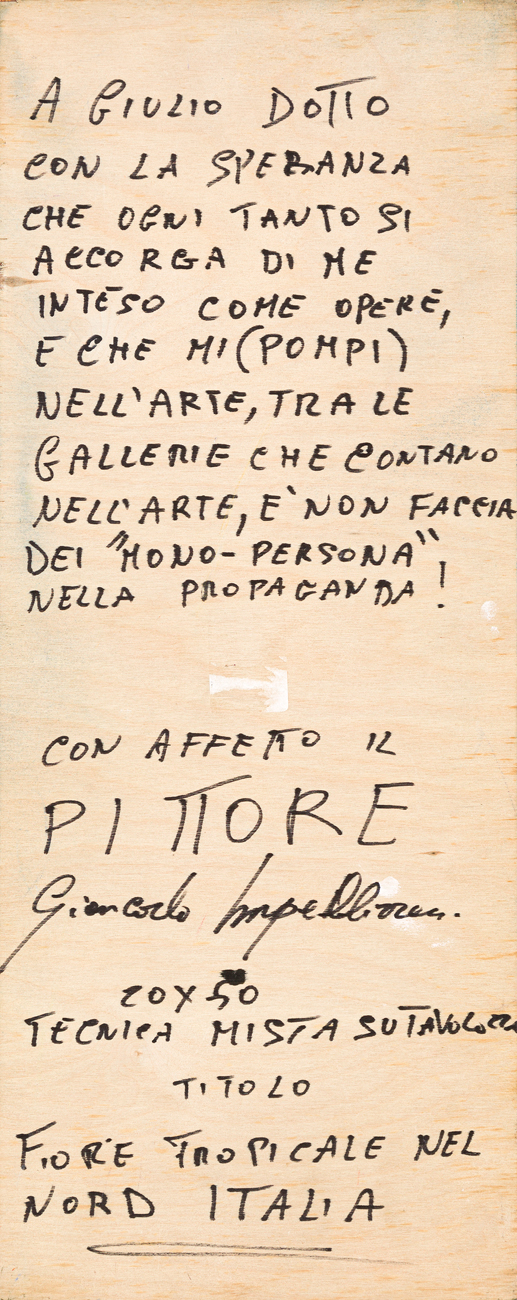 A GIULIO DOTTO
CON LA SPERANZA
CHE OGNI TANTO SI
ACCORGA DI ME
INTESO COME OPERE,
E CHE MI (POMPI)
NELL'ARTE, TRA LE
GALLERIE CHE CONTANO
NELL'ARTE, E` NON FACCIA
DEI "MONO-PERSONA"
NELLA PROPAGANDA!
CON AFFETTO IL
PITTORE
Giancarlo
20X50
TECNICA MISTA SU TAVOLOZZA
TITOLO
FIORE TROPICALE NEL
NORD ITALIA